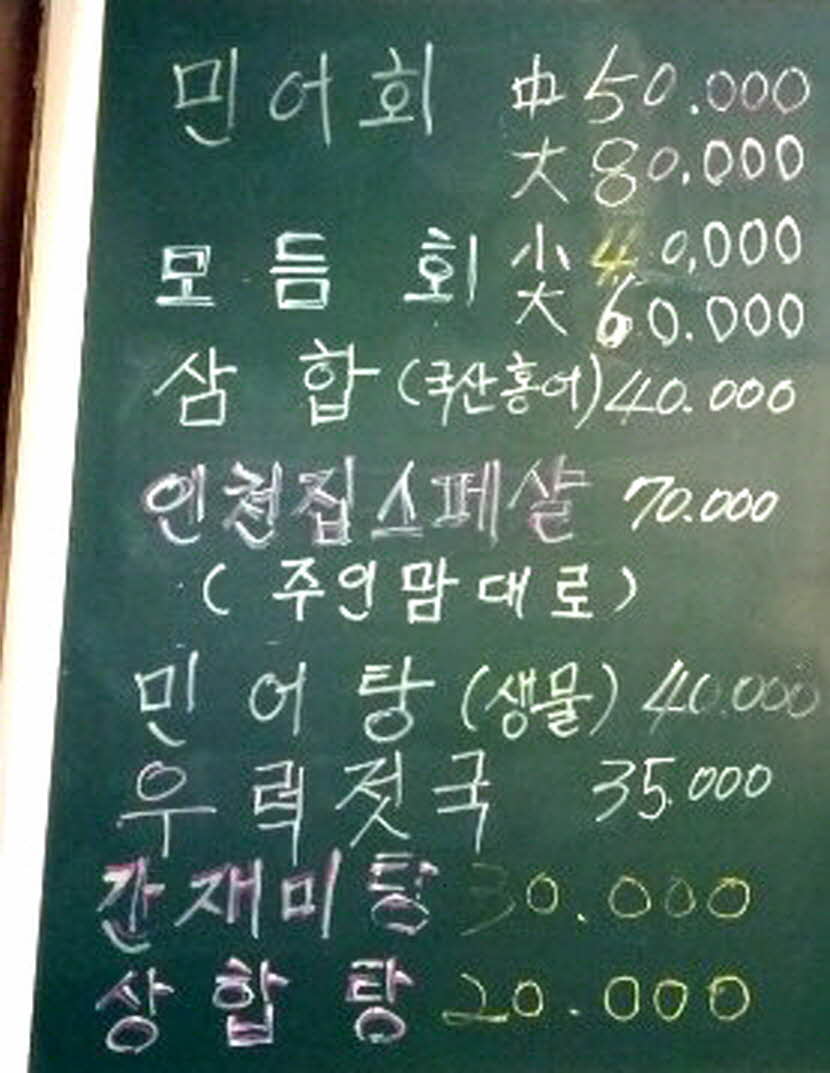 민어회 中 50.000
大 80.000
모듬회 小 40,000
大 60.000
삼합 (국산홍어) 40.000
인천집스페샬 70.000
(주인맘대로)
민어탕 (생물) 40.000
우럭젓국 35.000
간재미탕 30.000
상합탕 20.000